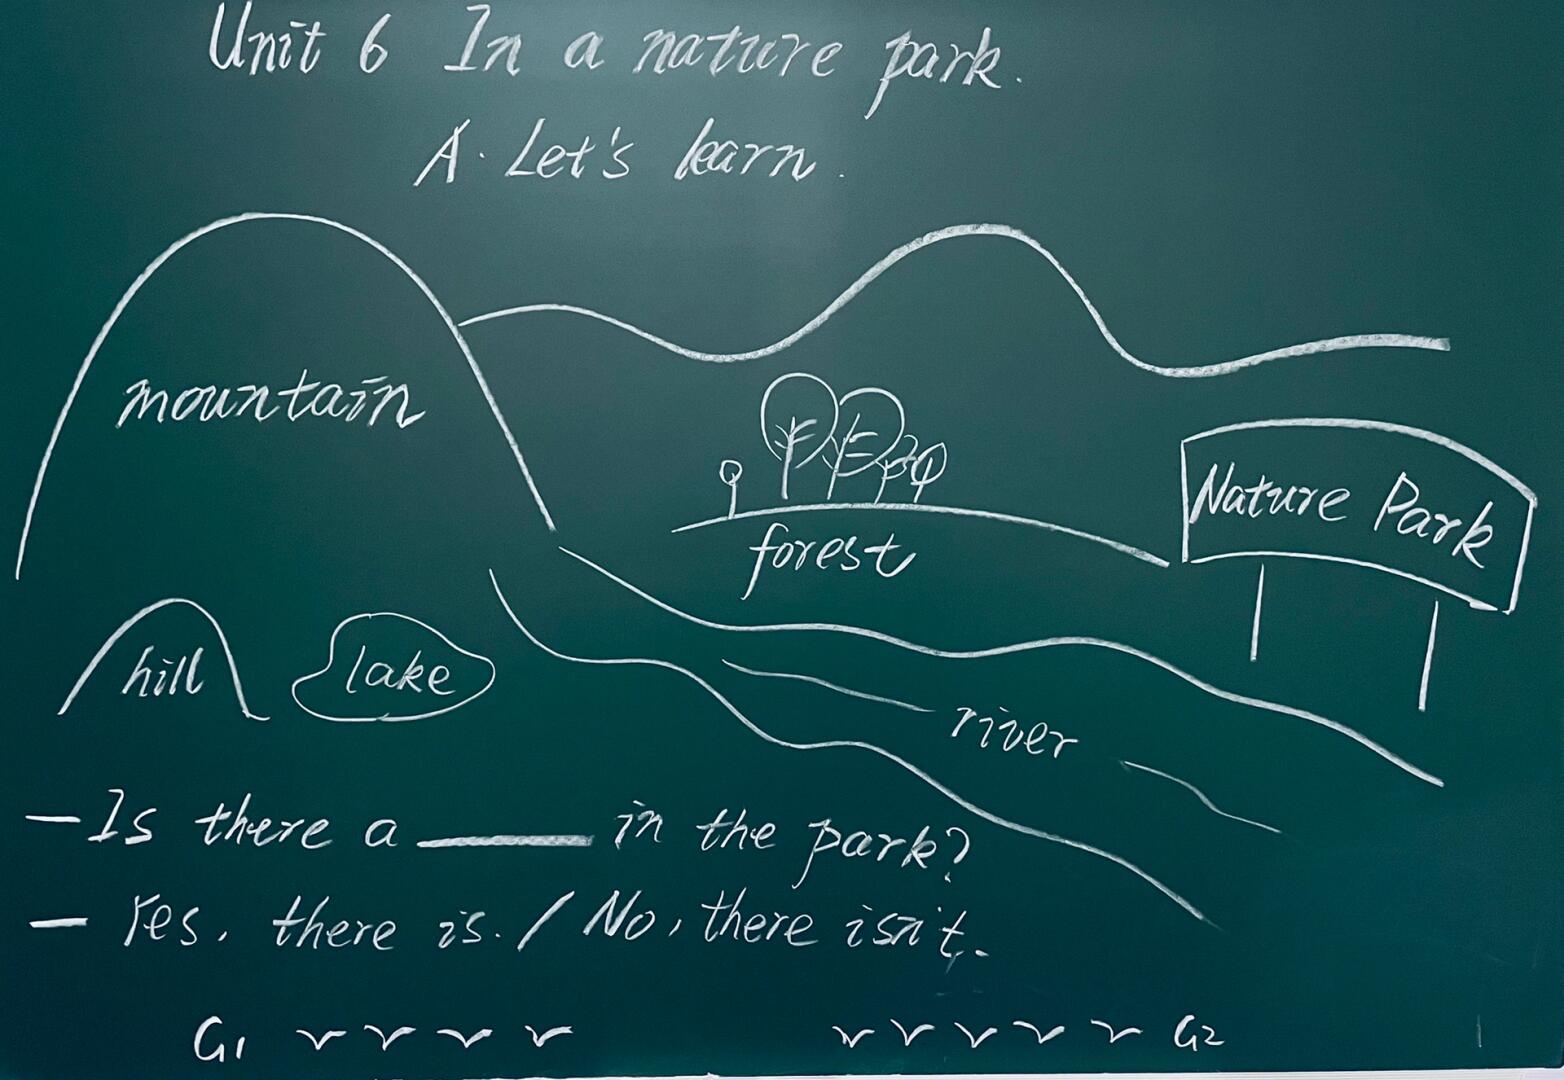 Unit 6 In a nature park.
A. Let's learn.
mountain
Nature Park
forest
hill
lake
river
— Is there a ______ in the park?
— Yes, there is. / No, there isn't.
G1 ✓ ✓ ✓ ✓
✓ ✓ ✓ ✓ ✓ G2